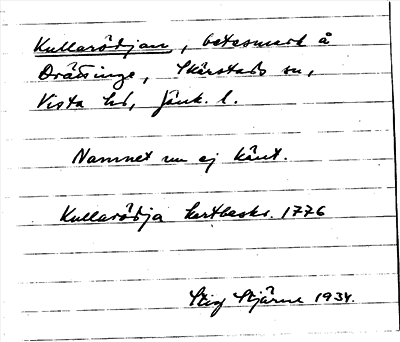 Kullarödjan, betesmark å
Drättinge, Skärstads sn,
Vista hd, Jönk. l.
Namnet nu ej känt.
Kullarödja kartbeskr. 1776
Stig Stjärne 1934.